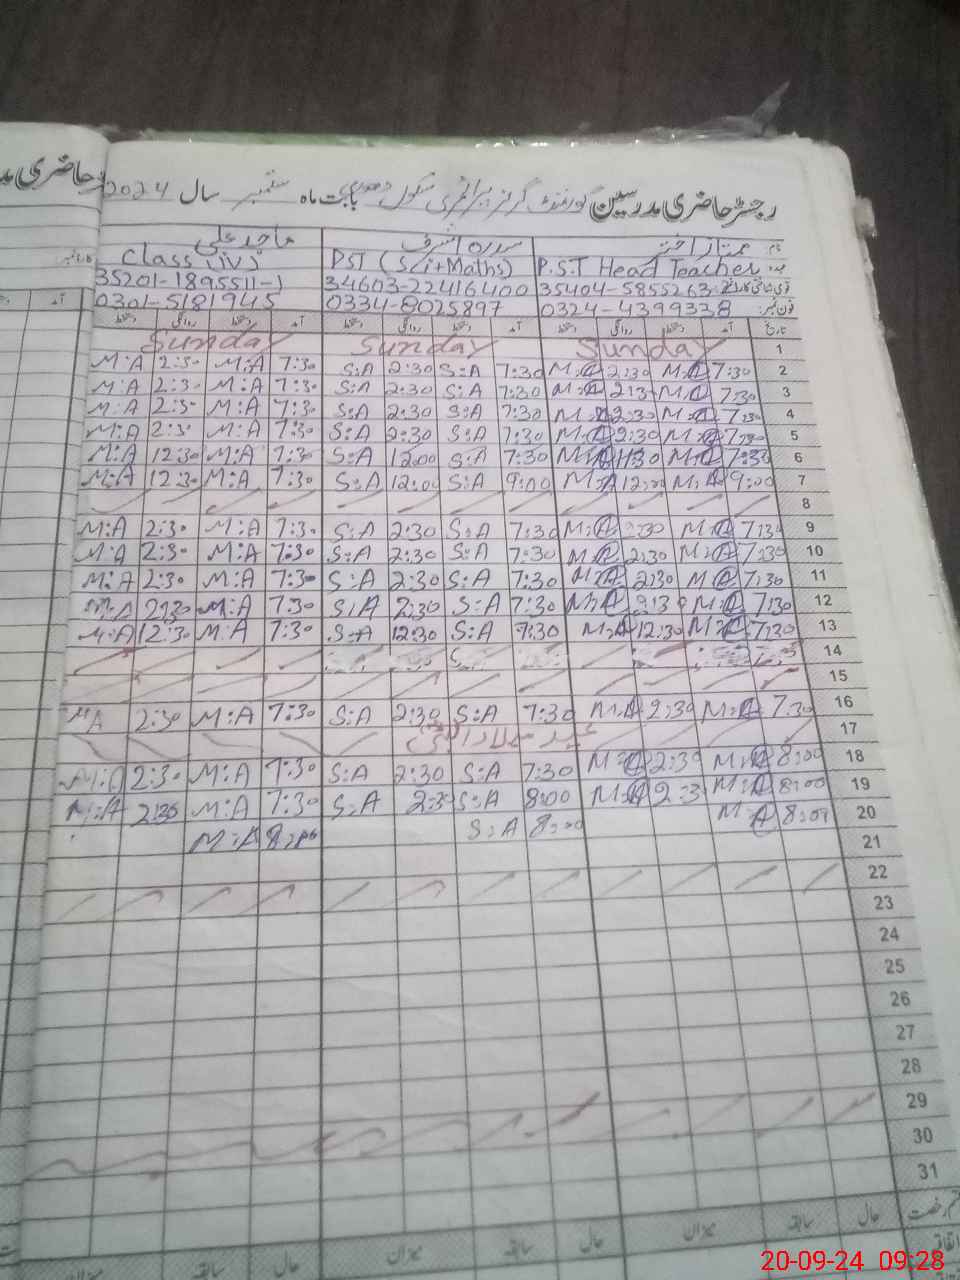 رجسٹر حاضری مدرسین گورنمنٹ گرلز پرائمری سکول بابت ماہ ستمبر سال 2024
رجسٹر حاضری
نام ممتاز اختر سدرہ اشرف ماجد علی
عہدہ P.S.T Head Teacher PST (Sci+Maths) Class (iv)
35404-5855263 34603-22416400 35201-1895511-1
فون نمبر 0324-4399338 0334-8025897 0301-5181945
تاریخ آمد دستخط روانگی دستخط آمد دستخط روانگی دستخط آمد دستخط روانگی دستخط
1 Sunday Sunday Sunday
2 7:30 M:A 2:30 M:A 7:30 S:A 2:30 S:A 7:30 M:A 2:30 M:A
3 7:30 M:A 2:3 M:A 7:30 S:A 2:30 S:A 7:30 M:A 2:30 M:A
4 7:30 M:A 2:30 M:A 7:30 S:A 2:30 S:A 7:30 M:A 2:30 M:A
5 7:30 M:A 2:30 M:A 7:30 S:A 2:30 S:A 7:30 M:A 2:30 M:A
6 7:30 M:A M:A 7:30 S:A 12:00 S:A 7:30 M:A 12:30 M:A
7 9:00 M:A 12:00 M:A 9:00 S:A 12:00 S:A 7:30 M:A 12:30 M:A
8
9 7:30 M:A 2:30 M:A 7:30 S:A 2:30 S:A 7:30 M:A 2:30 M:A
10 7:30 M:A 2:30 M:A 7:30 S:A 2:30 S:A 7:30 M:A 2:30 M:A
11 7:30 M:A 2:30 M:A 7:30 S:A 2:30 S:A 7:30 M:A 2:30 M:A
12 7:30 M:A 2:30 M:A 7:30 S:A 2:30 S:A 7:30 M:A 2:30 M:A
13 7:30 M:A 12:30 M:A 7:30 S:A 12:30 S:A 7:30 M:A 12:30 M:A
14
15
16 7:30 M:A 2:30 M:A 7:30 S:A 2:30 S:A 7:30 M:A 2:30 M:A
17 عید میلاد النبی
18 8:00 M:A 2:30 M:A 7:30 S:A 2:30 S:A 7:30 M:A 2:30 M:A
19 8:00 M:A 2:3 M:A 8:00 S:A 2:30 S:A 7:30 M:A 2:30 M:A
20 8:00 M:A 8:00 S:A 8:00 M:A
21
22
23
24
25
26
27
28
29
30
31
حال سابقہ میزان حال سابقہ میزان حال سابقہ میزان
20-09-24 09:28